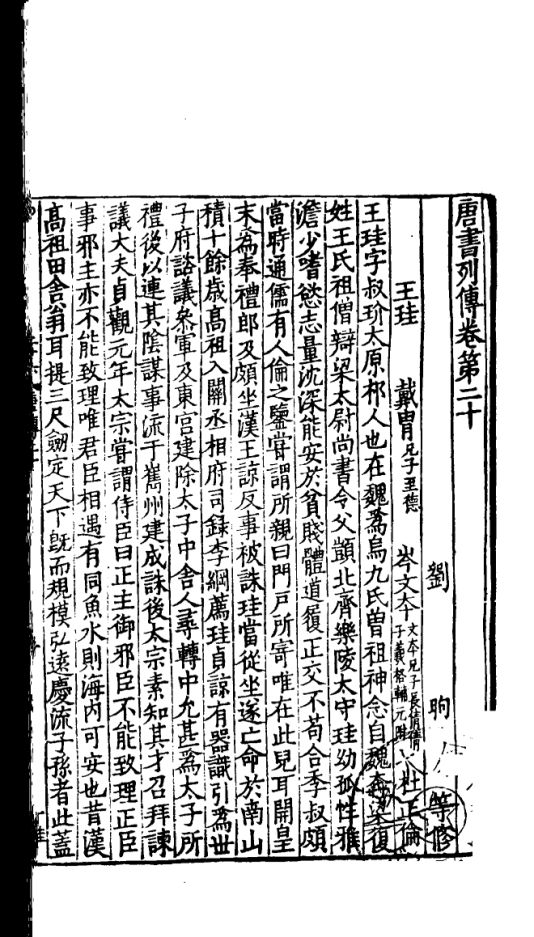 唐書列傳卷第二十
劉 昫 等修
王珪 戴胄兄子至德 岑文本文本兄子長倩倩子羲格輔元附 杜正倫
王珪字叔玠太原祁人也在魏爲烏丸氏曾祖神念自魏奔梁復
姓王氏祖僧辯梁太尉尚書令父顗北齊樂陵太守珪幼孤性雅
澹少嗜慾志量沈深能安於貧賤體道履正交不苟合季叔頗
當時通儒有人倫之鑒嘗謂所親曰門戶所寄唯在此兒耳開皇
末爲奉禮郎及頗坐漢王諒反事被誅珪當從坐遂亡命於南山
積十餘歲髙祖入關丞相府司錄李綱薦珪貞諒有器識引爲世
子府諮議叅軍及東宮建除太子中舍人尋轉中允甚爲太子所
禮後以連其陰謀事流于巂州建成誅後太宗素知其才召拜諫
議大夫貞觀元年太宗嘗謂侍臣曰正主御邪臣不能致理正臣
事邪主亦不能致理唯君臣相遇有同魚水則海內可安也昔漢
髙祖田舍翁耳提三尺劒定天下旣而規模弘遠慶流子孫者此蓋